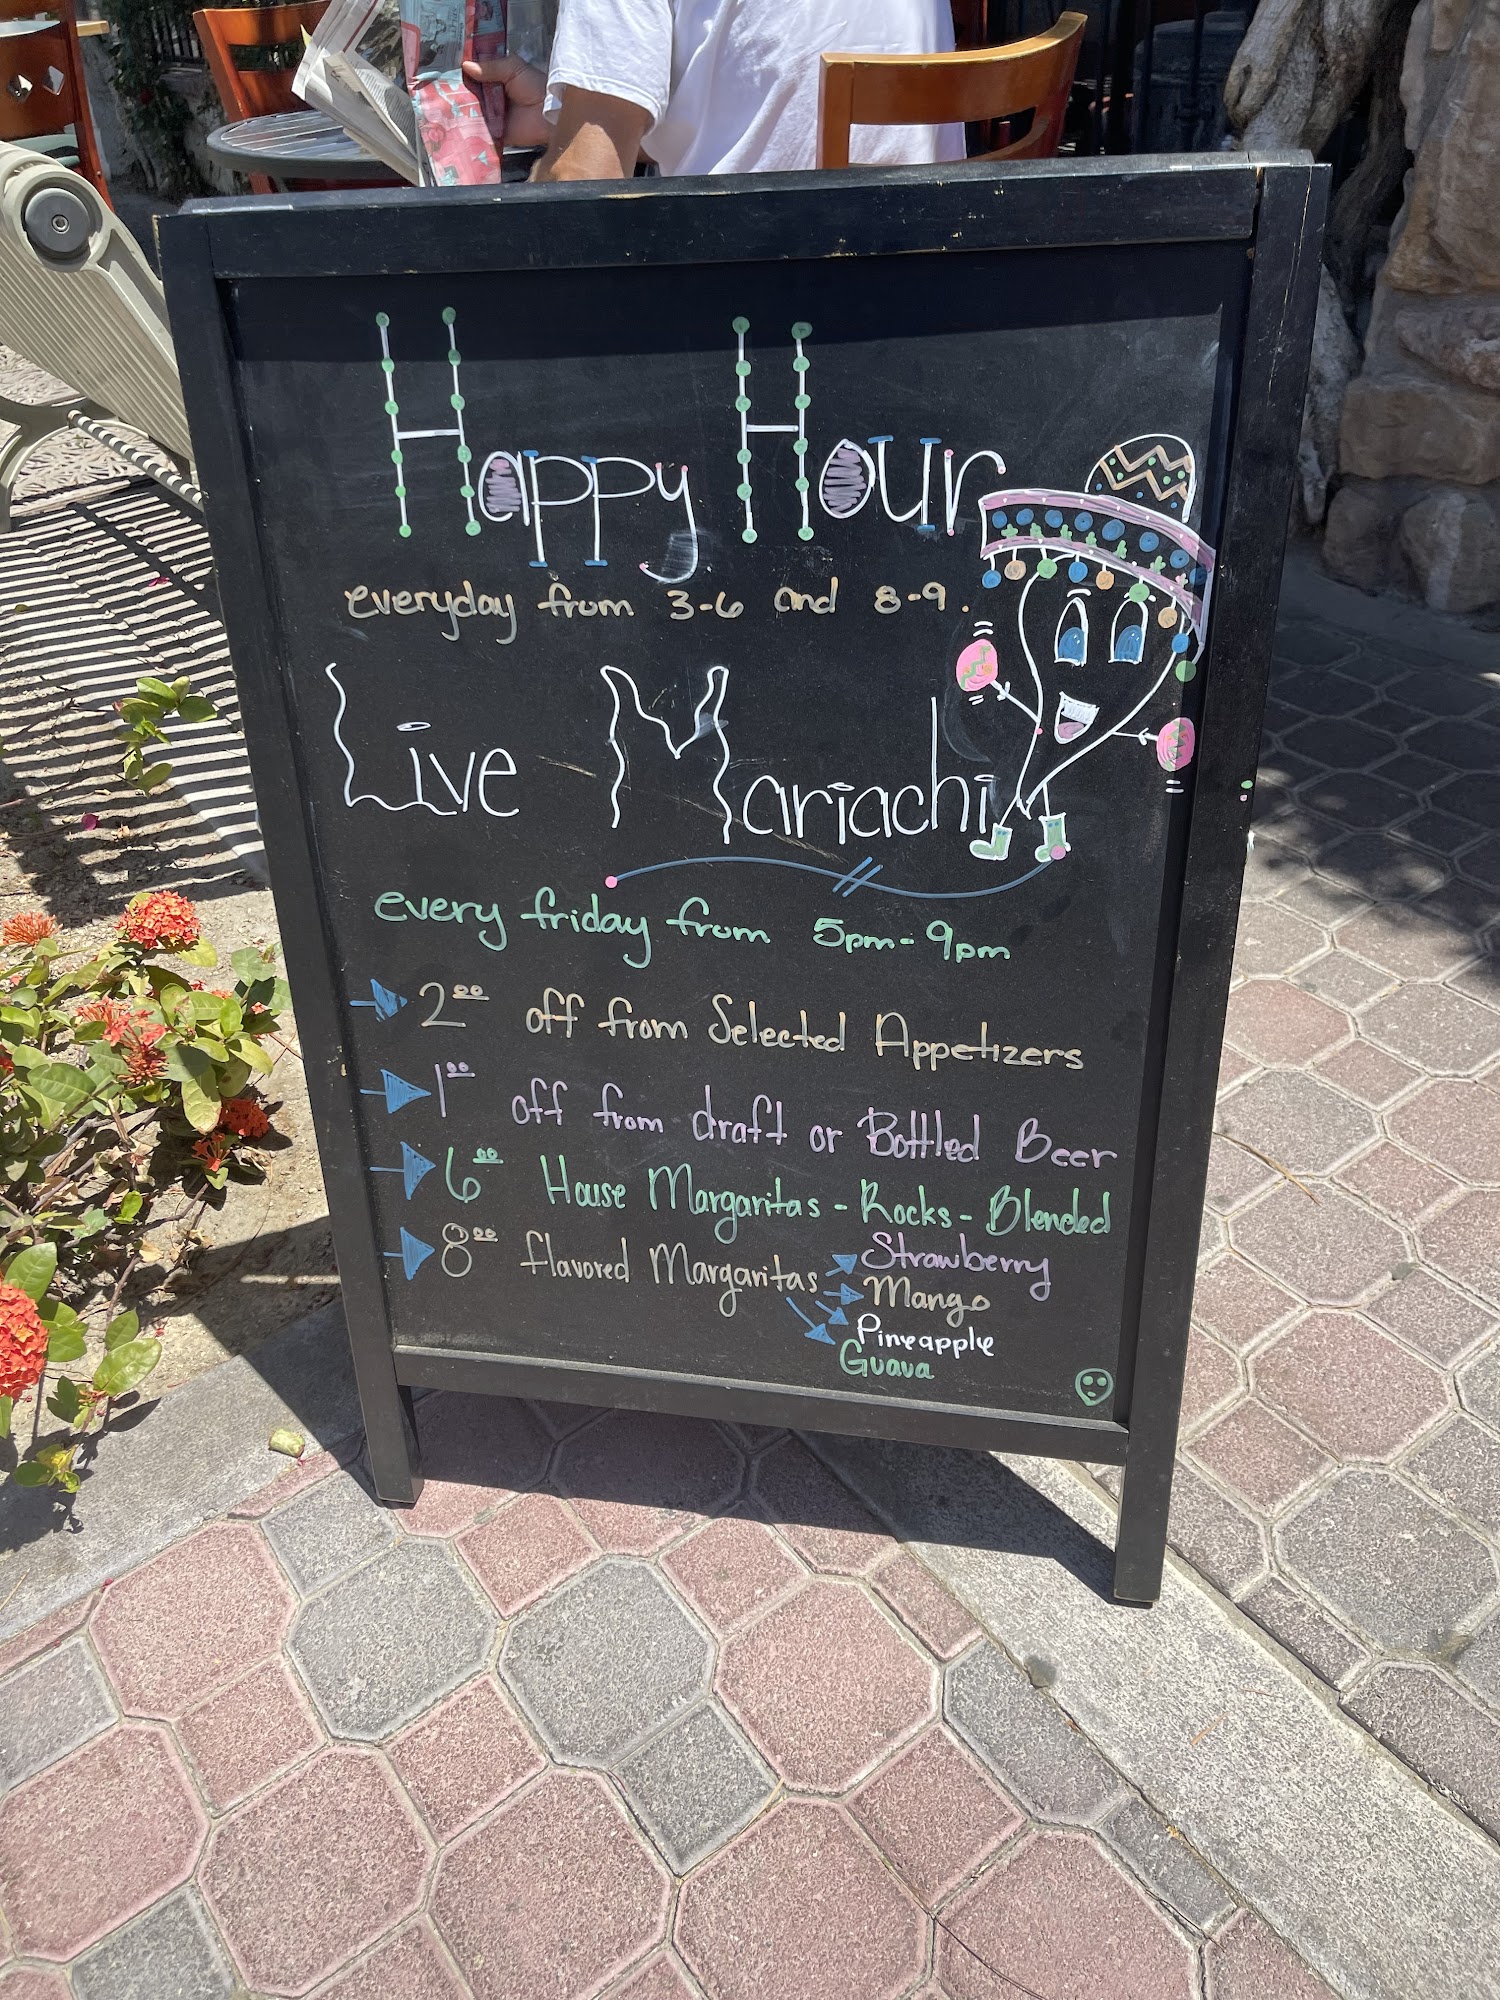 Happy Hour
everyday from 3-6 and 8-9.
Live Mariachi
every friday from 5pm-9pm
2.00 off from Selected Appetizers
1.00 off from draft or Bottled Beer
6.00 House Margaritas - Rocks - Blended
8.00 flavored Margaritas Strawberry
Mango
Pineapple
Guava